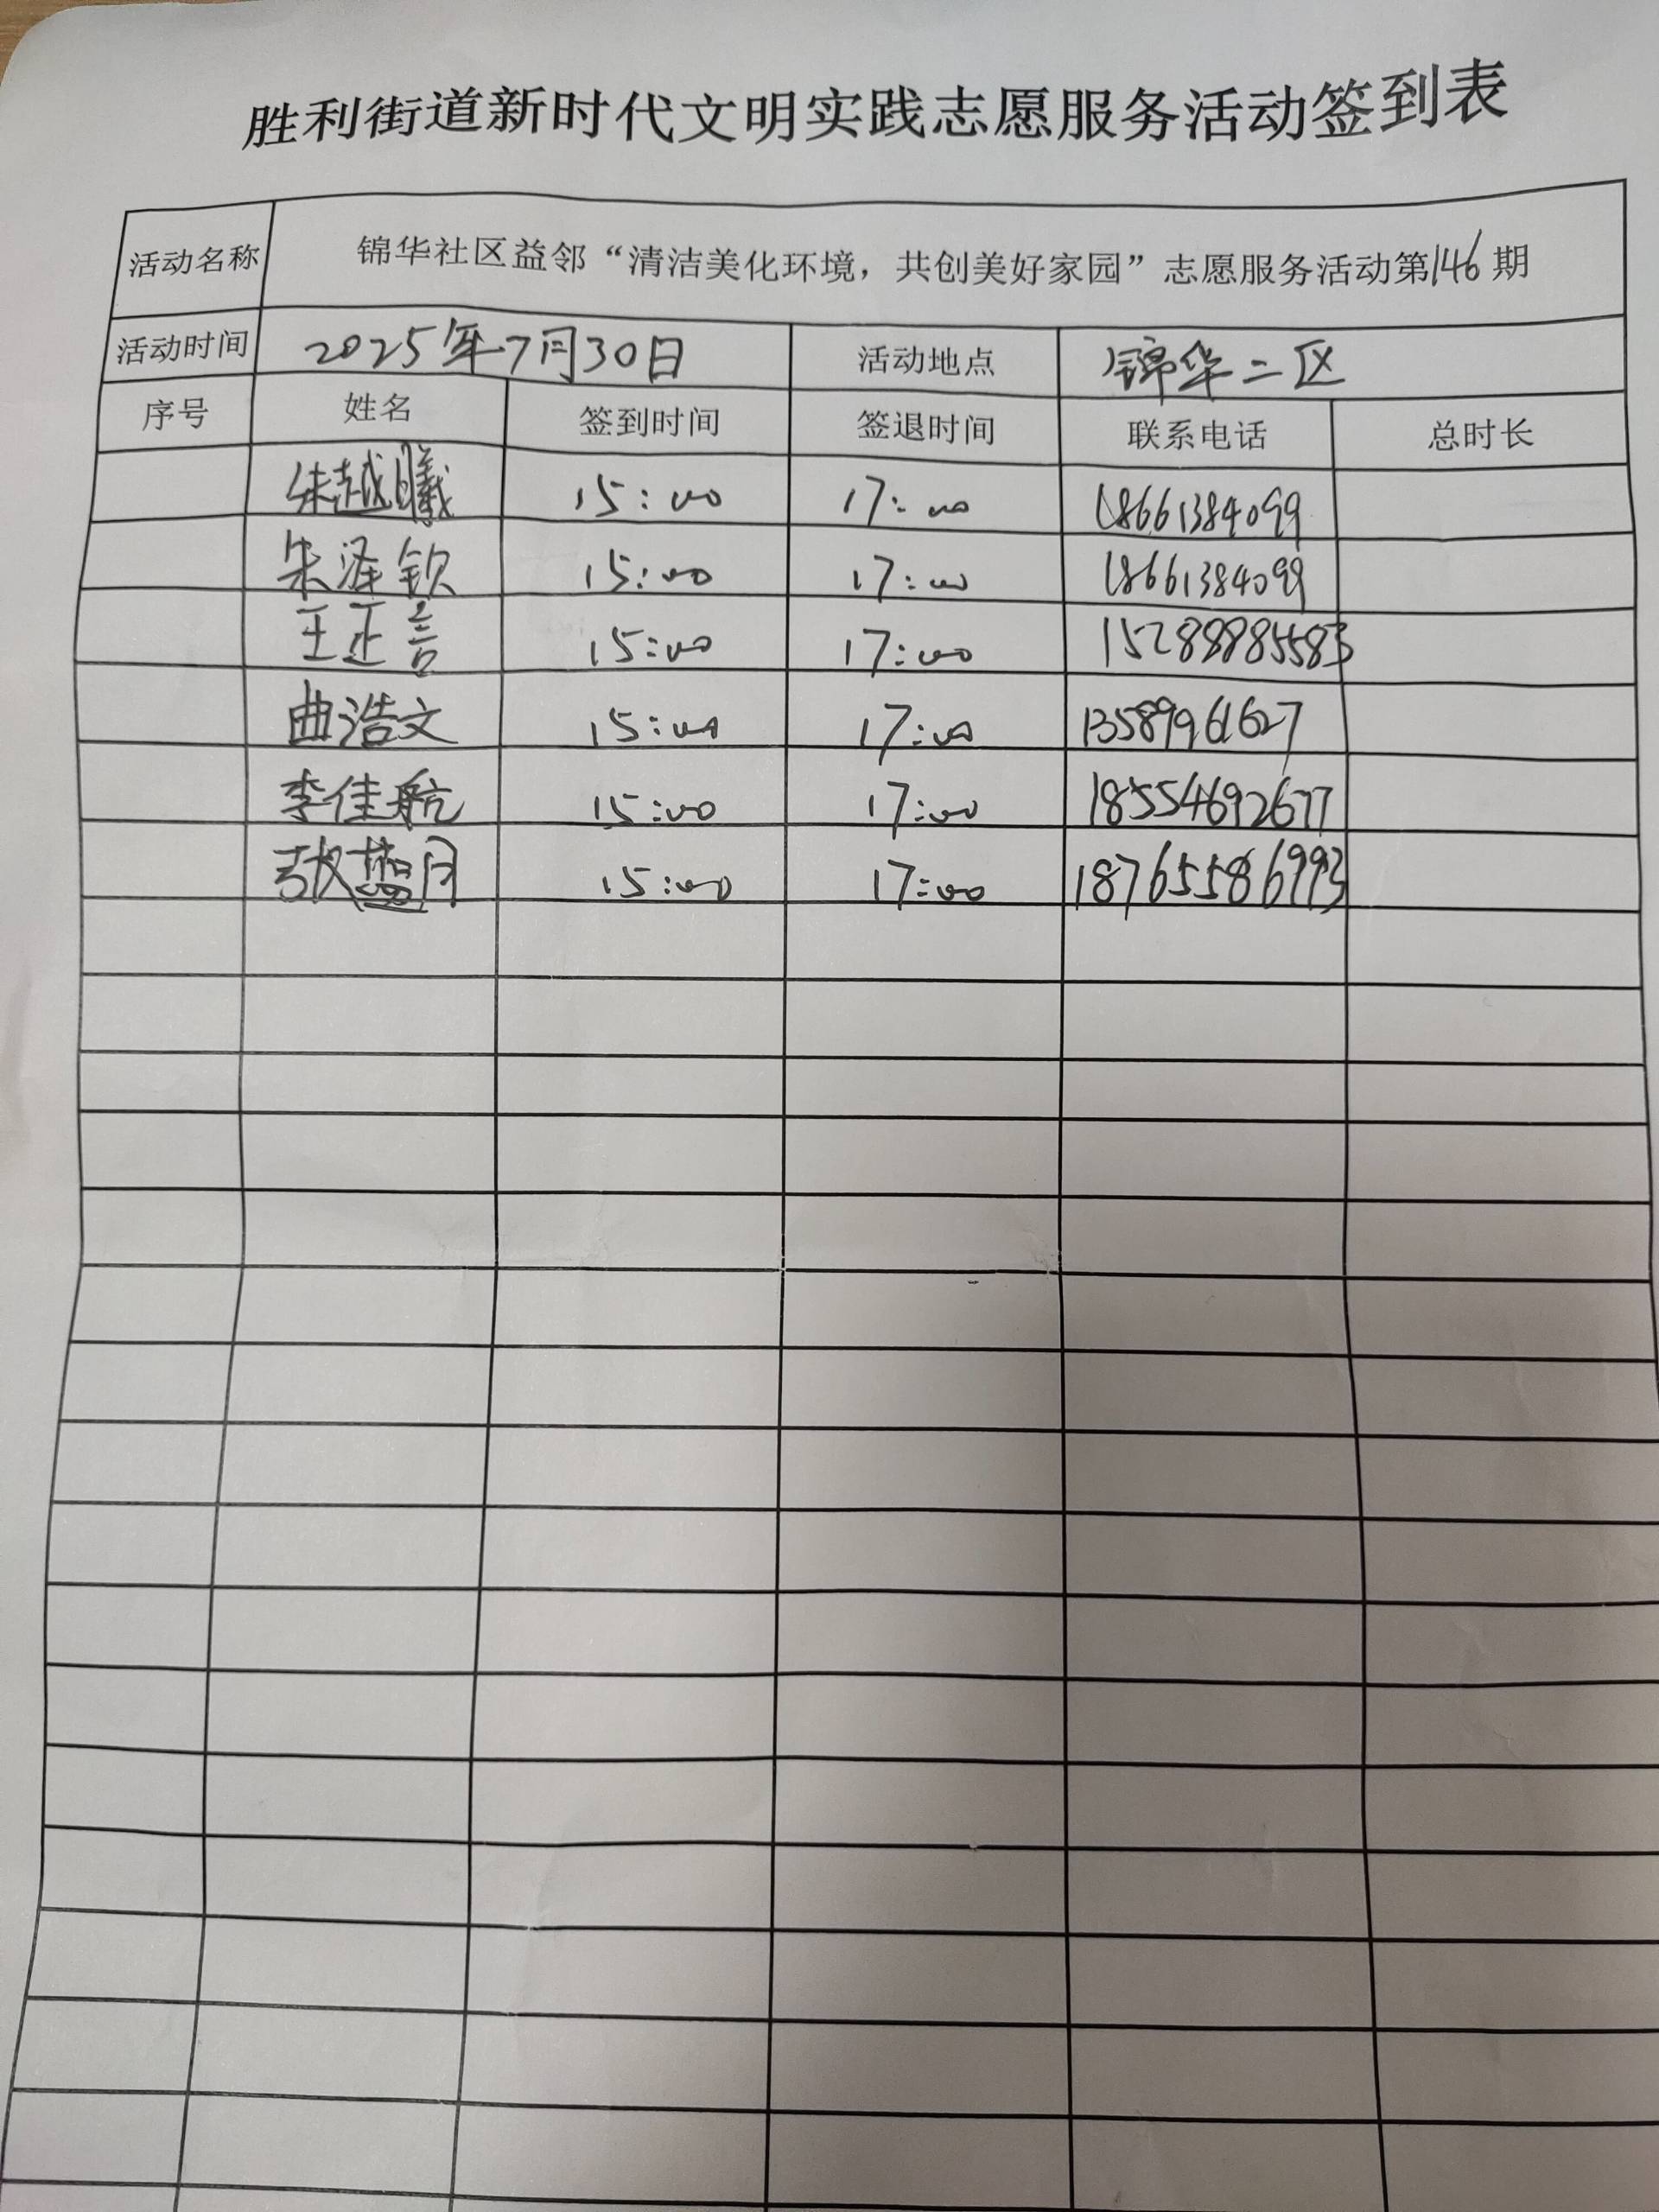 胜利街道新时代文明实践志愿服务活动签到表
活动名称 锦华社区益邻“清洁美化环境，共创美好家园”志愿服务活动第146期
活动时间 2025年7月30日 活动地点 锦华二区
序号 姓名 签到时间 签退时间 联系电话 总时长
朱越曦 15:00 17:00 18661384099
朱泽钦 15:00 17:00 18661384099
王正言 15:00 17:00 15288885583
曲浩文 15:00 17:00 13589961627
李佳航 15:00 17:00 18554692677
15:00 17:00 18765586993